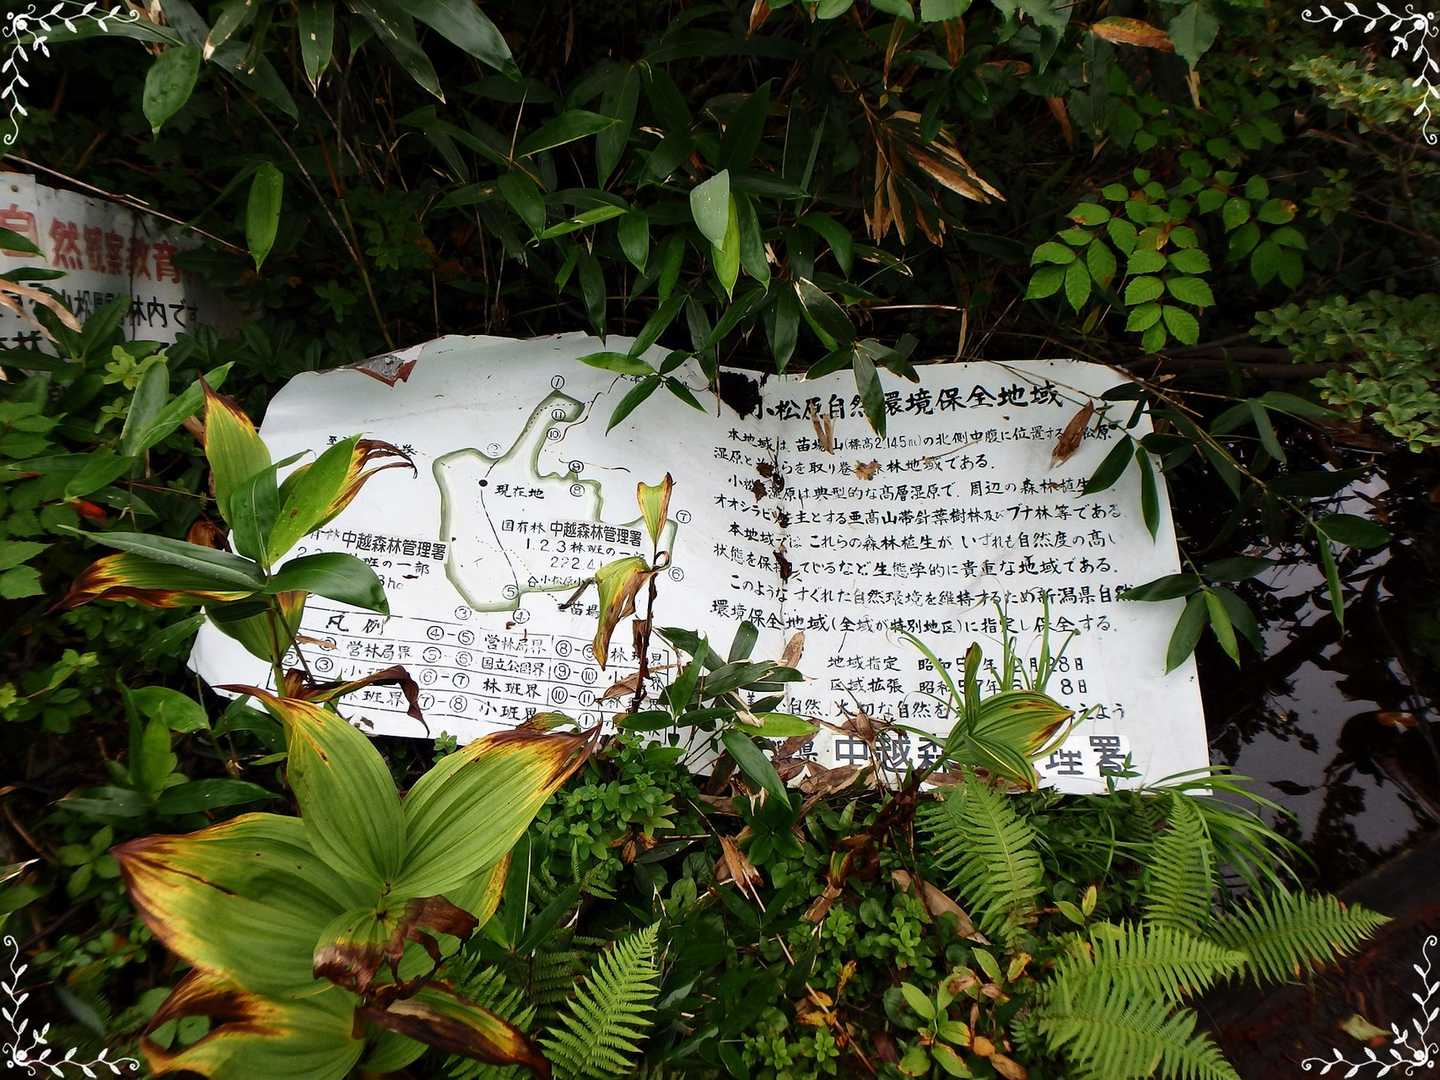 自然観察教育
林内です
現在地
国有林 中越森林管理署
1.2.3林班の一部
中越森林管理署
班の一部
凡例
④-⑤ 営林局界 ⑧-⑨
③ 営林局界 ⑤-⑥ 国立公園界 ⑨-⑩
⑥-⑦ 林班界 ⑩-⑪
⑦-⑧ 小班界
① ⑪ ⑩ ⑨ ⑧ ⑦ ⑥ ⑤ ④ ③ ②
小松原自然環境保全地域
本地域は、苗場山(標高2,145m)の北側中腹に位置する 松原
湿原と を取り巻 森林地域である。
小松 湿原は典型的な高層湿原で、周辺の森林植生
オオシラビ 主とする亜高山帯針葉樹林及びブナ林等である。
本地域では、これらの森林植生が、いずれも自然度の高い
状態を保 しているなど生態学的に貴重な地域である。
このような すぐれた自然環境を維持するため新潟県自然
環境保全地域(全域が特別地区)に指定し保全する。
地域指定 昭和 年 月 28日
区域拡張 昭和 年 8日
自然、大切な自然を えよう
県 中越森 理署